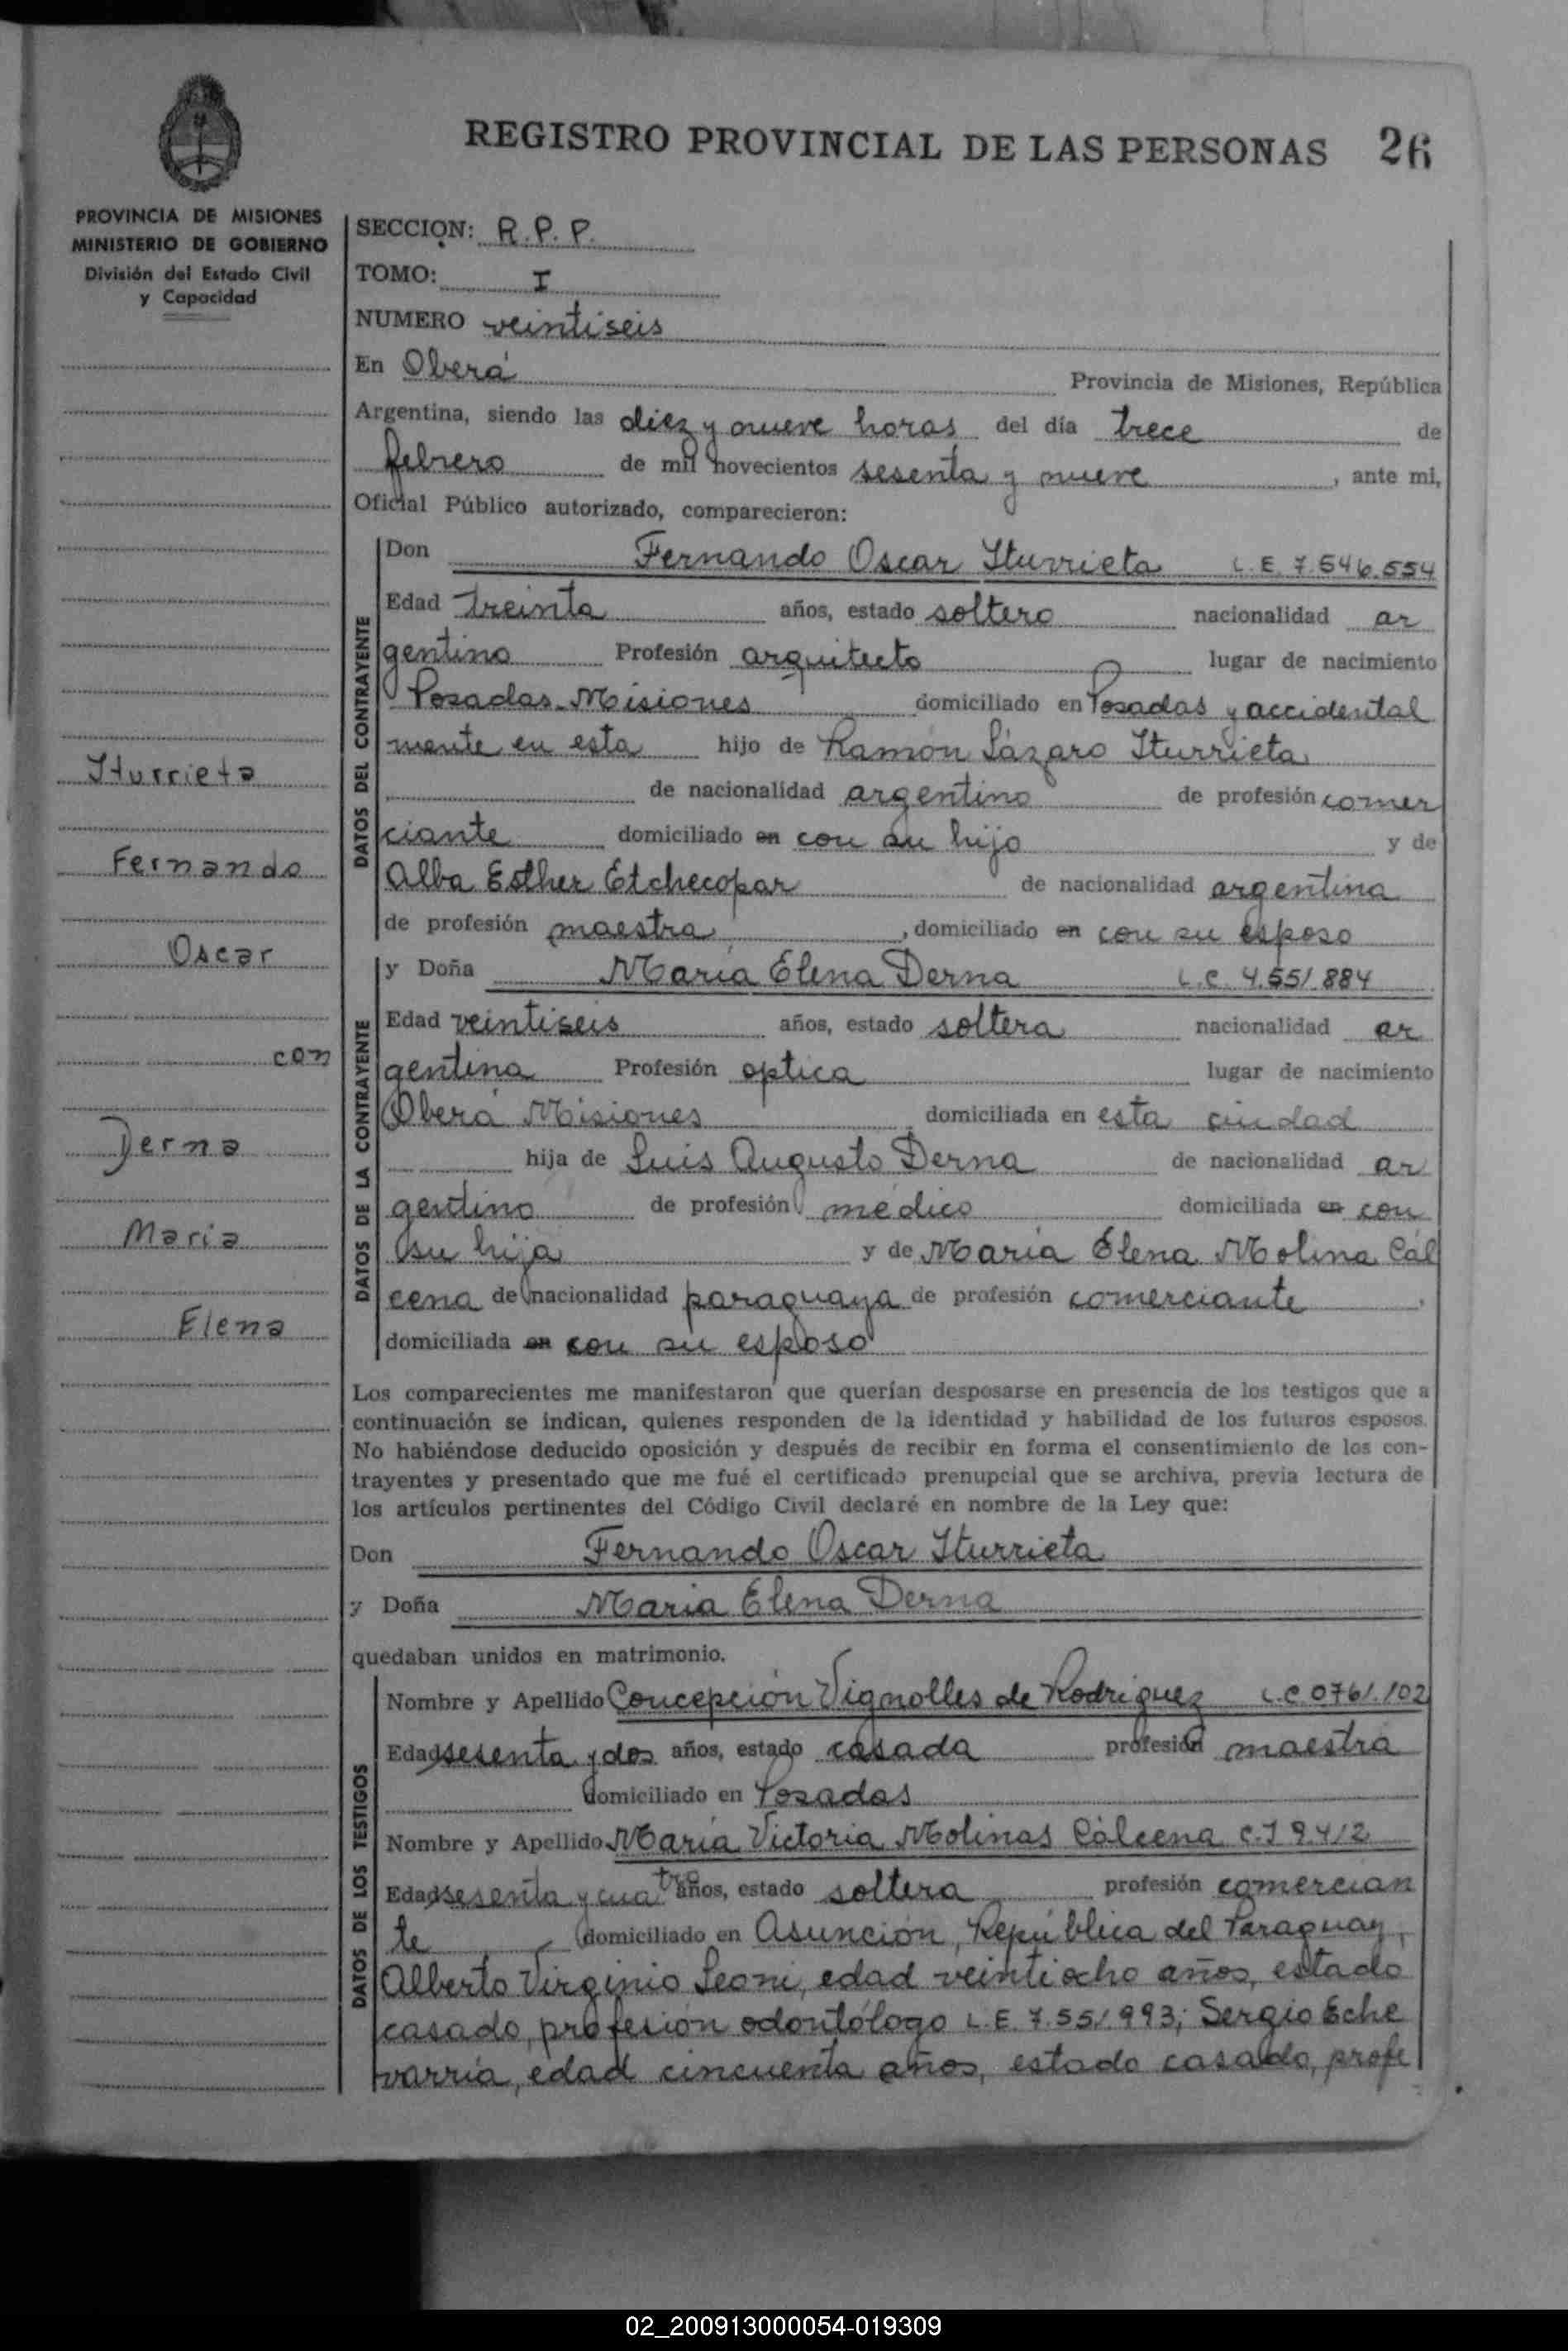 REGISTRO PROVINCIAL DE LAS PERSONAS 26
PROVINCIA DE MISIONES
MINISTERIO DE GOBIERNO
División del Estado Civil
y Capacidad
SECCION: R.P.P.
TOMO: I
NUMERO veintiseis
En Oberá Provincia de Misiones, República
Argentina, siendo las diez y nueve horas del día trece de
febrero de mil novecientos sesenta y nueve, ante mi,
Oficial Público autorizado, comparecieron:
DATOS DEL CONTRAYENTE
Don Fernando Oscar Iturrieta L.E. 7.546.554
Edad treinta años, estado soltero nacionalidad ar
gentino Profesión arquitecto lugar de nacimiento
Posadas-Misiones domiciliado en Posadas y accidental
mente en esta hijo de Ramón Lázaro Iturrieta
de nacionalidad argentino de profesión comer
ciante domiciliado en con su hijo y de
Alba Esther Etchecopar de nacionalidad argentina
de profesión maestra, domiciliado en con su esposo
DATOS DE LA CONTRAYENTE
y Doña María Elena Derna L.C. 4.551.884
Edad veintiseis años, estado soltera nacionalidad ar
gentina Profesión optica lugar de nacimiento
Oberá Misiones domiciliada en esta ciudad
hija de Luis Augusto Derna de nacionalidad ar
gentino de profesión médico domiciliada en con
su hija y de María Elena Molina Cál
cena de nacionalidad paraguaya de profesión comerciante,
domiciliada en con su esposo
Iturrieta
Fernando
Oscar
con
Derna
Maria
Elena
Los comparecientes me manifestaron que querían desposarse en presencia de los testigos que a
continuación se indican, quienes responden de la identidad y habilidad de los futuros esposos.
No habiéndose deducido oposición y después de recibir en forma el consentimiento de los con-
trayentes y presentado que me fué el certificado prenupcial que se archiva, previa lectura de
los artículos pertinentes del Código Civil declaré en nombre de la Ley que:
Don Fernando Oscar Iturrieta
y Doña Maria Elena Derna
quedaban unidos en matrimonio.
DATOS DE LOS TESTIGOS
Nombre y Apellido Concepción Vignolles de Rodriguez L.C. 0761.102
Edad sesenta y dos años, estado casada profesión maestra
domiciliado en Posadas
Nombre y Apellido María Victoria Molinas Cálcena C.I 9.412
Edad sesenta y cuatro años, estado soltera profesión comercian
te domiciliado en Asunción, República del Paraguay,
Alberto Virginio Leoni, edad veintiocho años, estado
casado, profesión odontólogo L.E. 7.551.993; Sergio Eche
varría, edad cincuenta años, estado casado, profe
02_200913000054-019309